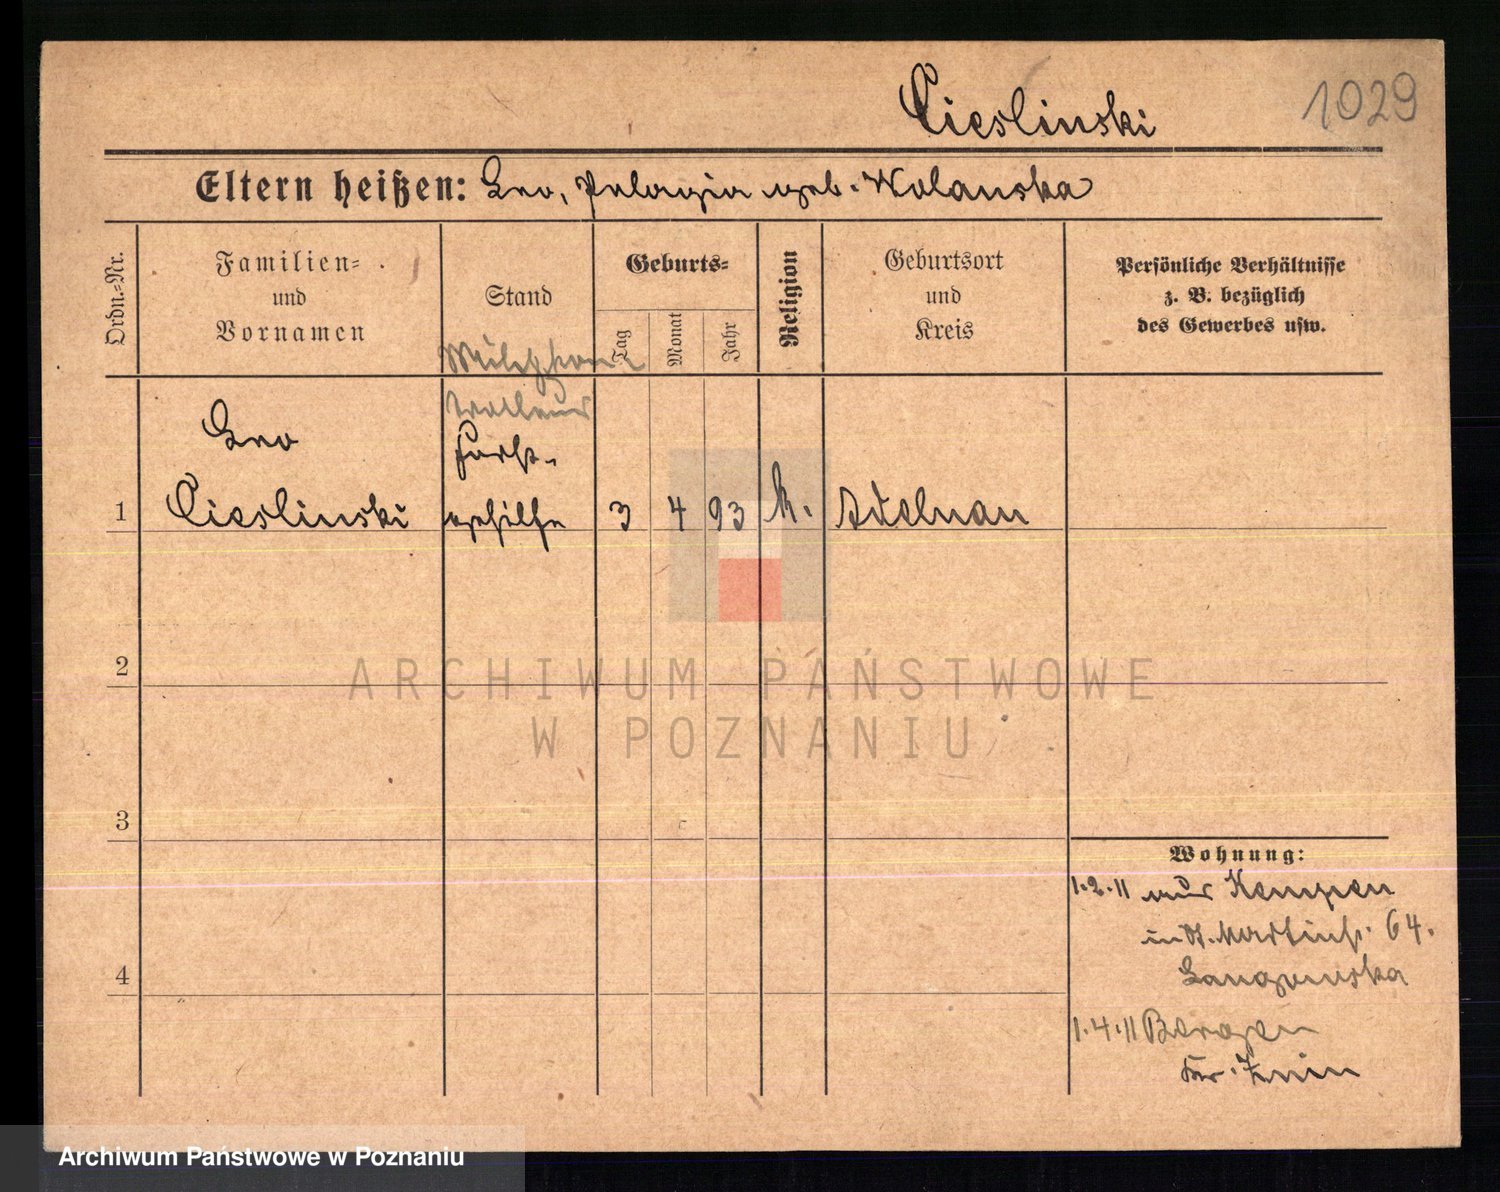 Cieslinski 1029
Eltern heißen: Leo, Pelagia geb. Wolanska
Ordn.-Nr.
Familien-
und
Vornamen
Stand
Geburts-
Tag
Monat
Jahr
Religion
Geburtsort
und
Kreis
Persönliche Verhältnisse
z. B. bezüglich
des Gewerbes usw.
Leo
Forst-
1 Cieslinski gehilfe 3 4 93 k. Adelnau
2
3
4
Wohnung:
1.2.11 aus Kempen
in St. Martinst. 64.
1.4.11
Kr. Znin
ARCHIWUM PAŃSTWOWE
W POZNANIU
Archiwum Państwowe w Poznaniu